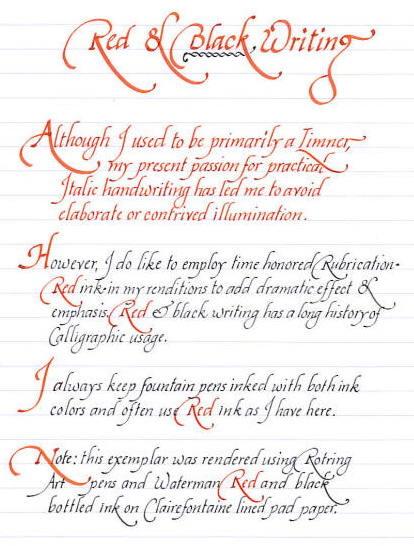 Red & Black Writing
Although I used to be primarily a Limner,
my present passion for practical
Italic handwriting has led me to avoid
elaborate or contrived illumination.
However, I do like to employ time honored Rubrication-
Red ink-in my renditions to add dramatic effect &
emphasis. Red & black writing has a long history of
Calligraphic usage.
I always keep fountain pens inked with both ink
colors and often use Red ink as I have here.
Note: this exemplar was rendered using Rotring
Art pens and Waterman Red and black
bottled ink on Clairefontaine lined pad paper.